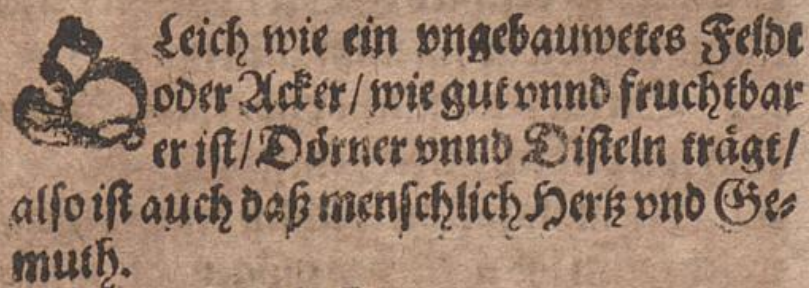 GLeich wie ein vngebauwetes Feldt
oder Acker/ wie gut vnnd fruchtbar
er ist/ Dörner vnnd Disteln trägt/
also ist auch daß menschlich Hertz vnd Ge⸗
muth.